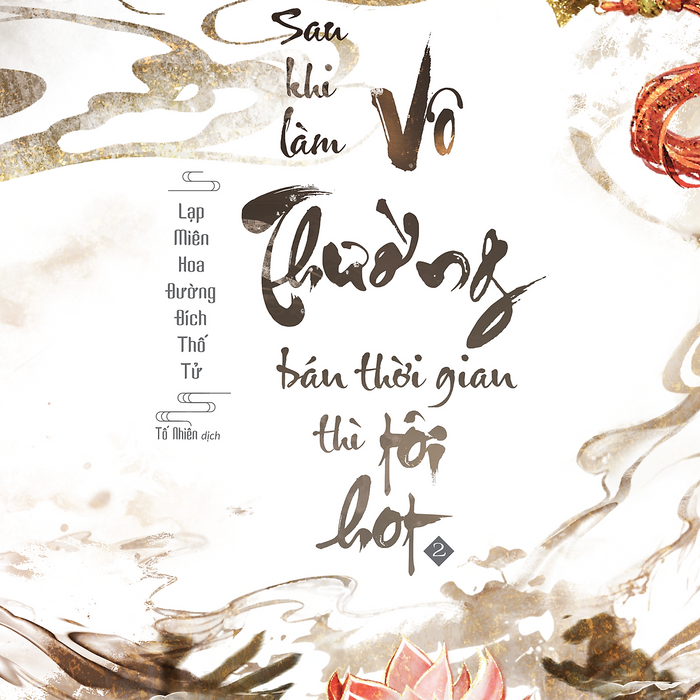 Sau
khi
làm
Vô
Thường
bán thời gian
thì tôi
hot
2
Lạp
Miên
Hoa
Đường
Đích
Thố
Tử
Tố Nhiên dịch